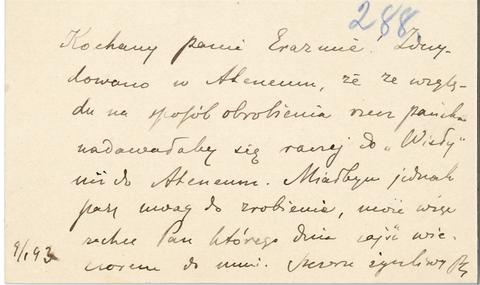 288.
Kochany panie Erazmie! Zdecy-
dowano w Ateneum, że ze wzglę-
du na sposób obrobienia rzecz pańska
nadawałaby się raczej do „Wisły"
niż do Ateneum. Miałbym jednak
parę uwag do zrobienia, może więc
zechce Pan którego dnia zajść wie-
czorem do mnie. Szczerze życzliwy
9/I 93